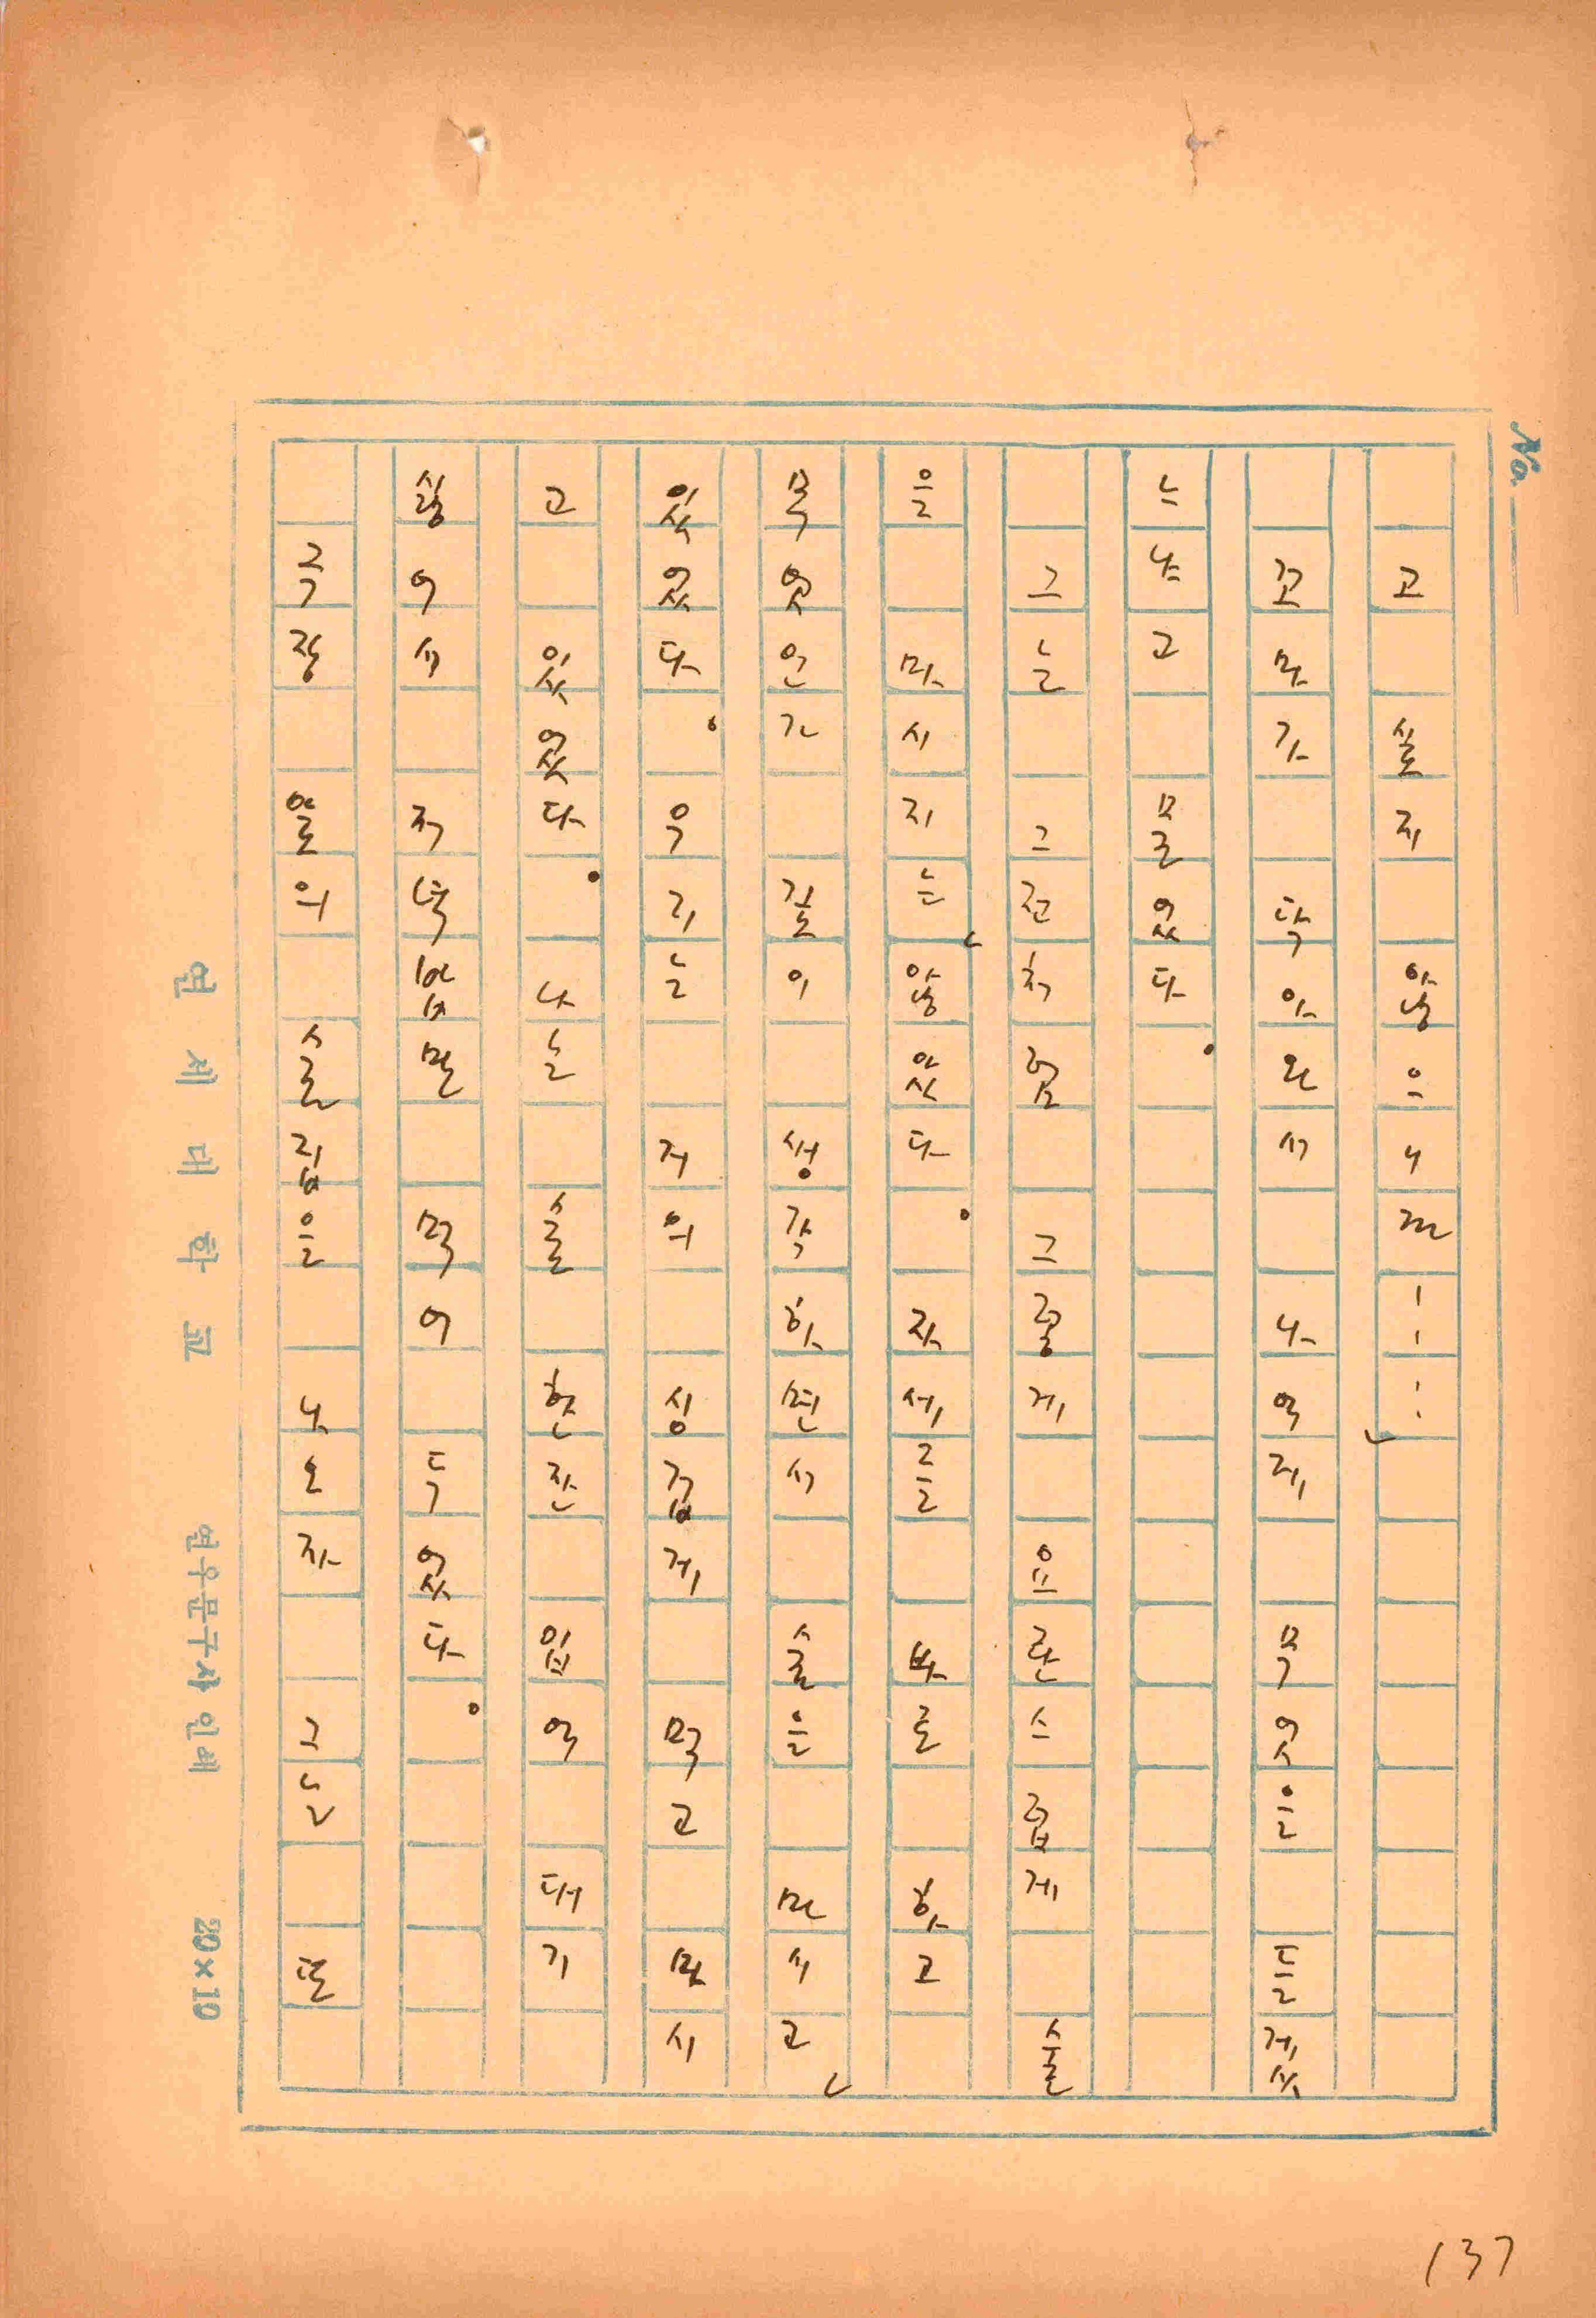 고 싶지 않으니까……
꼬마가 닥아와서 나에게 무엇을 들겠
느냐고 물었다.
그는 그전처럼 그렇게 요란스럽게 술
을 마시지는 않았다. 자세를 바로하고
무엇인가 깊이 생각하면서 술을 마시고
있었다. 우리는 거의 싱겁게 먹고 마시
고 있었다. 나는 술 한잔 입에 대기
싫어서 저녁밥만 먹어 두었다.
극장 옆의 술집을 나오자 그는 또
연세대학교 연우문구사인쇄 20×10
No.
137